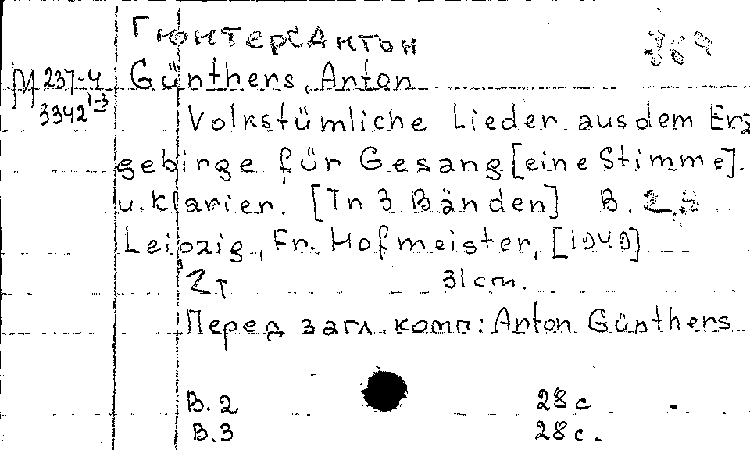 Гюнтерс Антон
364
М 237-4 Günthers, Anton
3342 1-3
Volkstümliche Lieder aus dem Erz
gebirge für Gesang [eine Stimme].
u. Klavier. [In 3 Bänden] B. 2,3
Leipzig, Fr. Hofmeister, [1940]
2 т 31 cm.
Перед загл. комп: Anton Günthers
B. 2 28 c
B. 3 28 c.